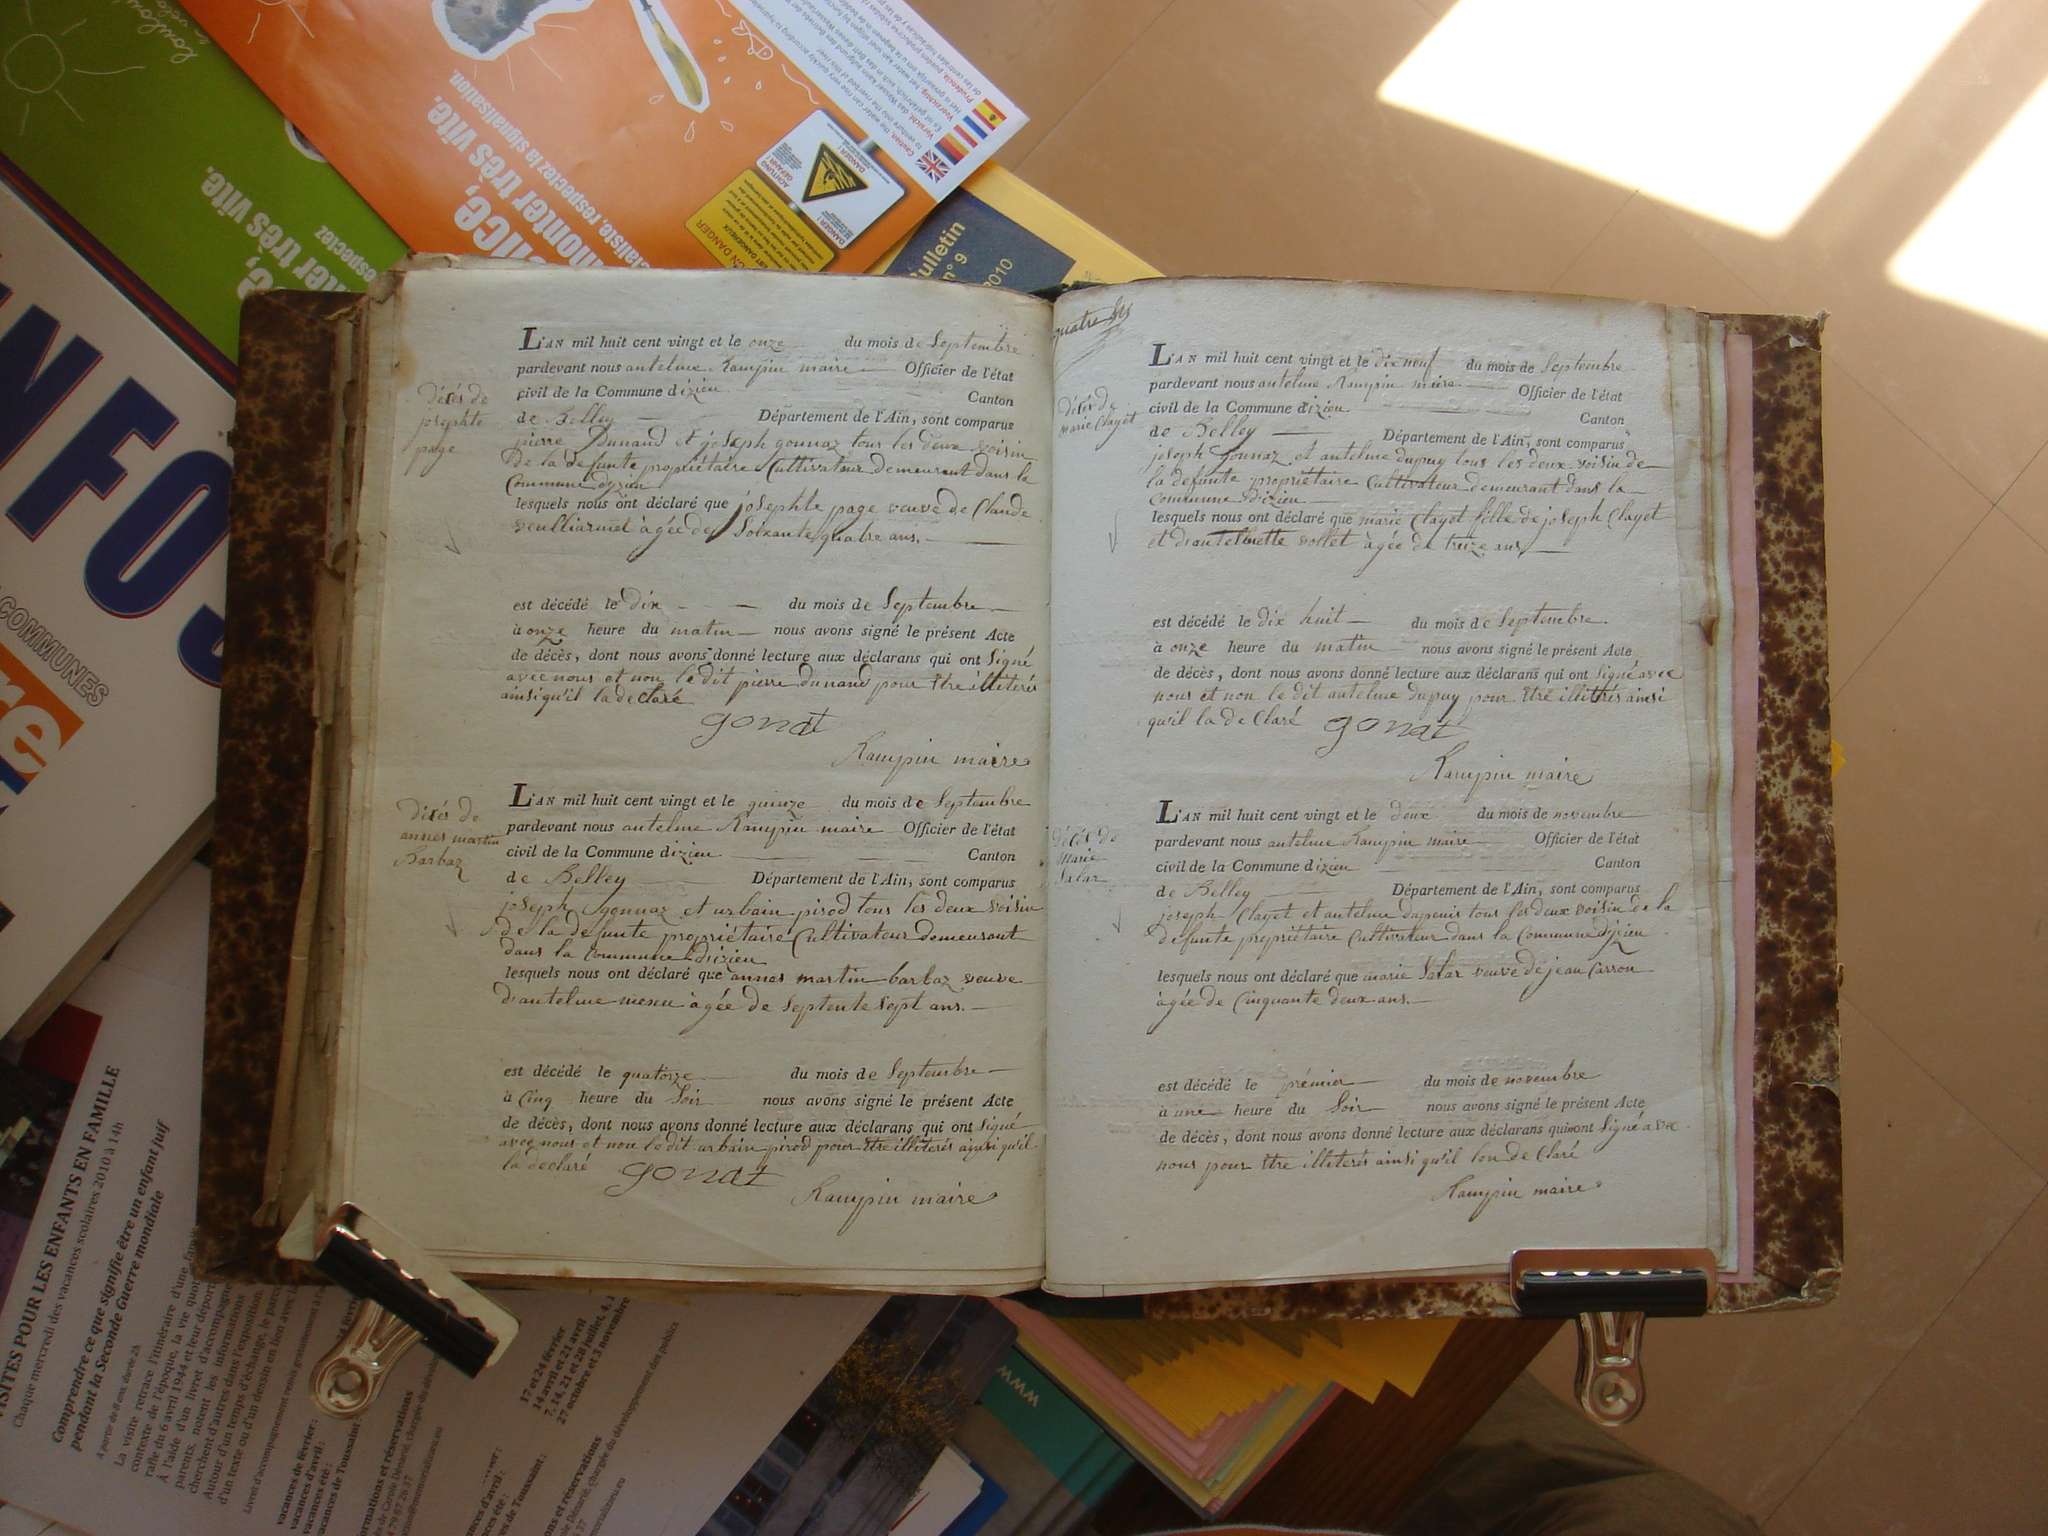 décés de
josephte
page
L'AN mil huit cent vingt et le onze du mois de Septembre
pardevant nous antelme Rampin maire Officier de l'état
civil de la Commune dizieu Canton
de Belley Département de l'Ain, sont comparus
pierre Dunand et joseph gonnaz tous les deux voisin
De la defunte propriétaire Cultivateur demeurant dans la
Commune dizieu
lesquels nous ont déclaré que josephte page veuve de Claude
veulliarmet àgée de Soixante quatre ans.
est décédé le dix du mois de Septembre
à onze heure du matin nous avons signé le présent Acte
de décès, dont nous avons donné lecture aux déclarans qui ont Signé
avec nous et non le dit pierre dunand pour Etre illiterés
ainsi qu'il la declaré
gonat
Rampin maire
décés de
annes martin
Barbaz
L'AN mil huit cent vingt et le quinze du mois de Septembre
pardevant nous antelme Rampin maire Officier de l'état
civil de la Commune dizieu Canton
de Belley Département de l'Ain, sont comparus
joseph gonnaz et urbain pirod tous les deux voisin
de la defunte propriétaire Cultivateur demeurant
dans la Commune dizieu
lesquels nous ont déclaré que annes martin barbaz veuve
d'antelme àgée de Septente Sept ans.
est décédé le quatorze du mois de Septembre
à Cinq heure du Soir nous avons signé le présent Acte
de décès, dont nous avons donné lecture aux déclarans qui ont Signé
avec nous et non le dit urbain pirod pour Etre illiterés ainsi qu'il
la declaré gonat
Rampin maire
quatre
décés de
marie Clayet
L'AN mil huit cent vingt et le dix neuf du mois de Septembre
pardevant nous antelme Rampin maire Officier de l'état
civil de la Commune dizieu Canton
de Belley Département de l'Ain, sont comparus
joseph Gonnaz et antelme dupuy tous les deux voisin de
la defunte propriétaire Cultivateur demeurant dans la
Commune Dizieu
lesquels nous ont déclaré que marie Clayet fille de joseph Clayet
et d'antelmette vollet àgée de treize ans
est décédé le dix huit du mois de Septembre
à onze heure du matin nous avons signé le présent Acte
de décès, dont nous avons donné lecture aux déclarans qui ont Signé avec
nous et non le dit antelme dupuy pour Etre illitérés ainsi
qu'il la de Claré gonat
Rampin maire
décés de
Marie
Salar
L'AN mil huit cent vingt et le deux du mois de novembre
pardevant nous antelme Rampin maire Officier de l'état
civil de la Commune dizieu Canton
de Belley Département de l'Ain, sont comparus
joseph Clayet et antelme tous les deux voisin de la
defunte propriétaire Cultivateur dans la Commune dizieu
lesquels nous ont déclaré que marie Salar veuve de jean Carron
àgée de Cinquante deux ans.
est décédé le prémier du mois de novembre
à une heure du Soir nous avons signé le présent Acte
de décès, dont nous avons donné lecture aux déclarans qui ont Signé avec
nous pour Etre illiterés ainsi qu'il lon de Claré
Rampin maire
monter très vite.
respectez la signalisation.
DANGER !
Bulletin
n° 9
2010
très vite.
respectez
INFOS
COMMUNES
VISITES POUR LES ENFANTS EN FAMILLE
Chaque mercredi des vacances scolaires 2010 à 14h
Comprendre ce que signifie être un enfant juif
pendant la Seconde Guerre mondiale
La visite retrace l'itinéraire d'une
contexte de l'époque, la vie
rafle du 6 avril 1944 et leur
À l'aide d'un livret d'accompagnement
parents, notent les informations
cherchent d'autres dans l'exposition
Autour d'un temps d'échange, le
d'un texte ou d'un dessin en lien avec
vacances de février :
vacances d'avril :
vacances d'été :
vacances de Toussaint :
17 et 24 février
14 avril et 21 avril
7, 14, 21 et 28 juillet, 4, 1
27 octobre et 3 novembre
www